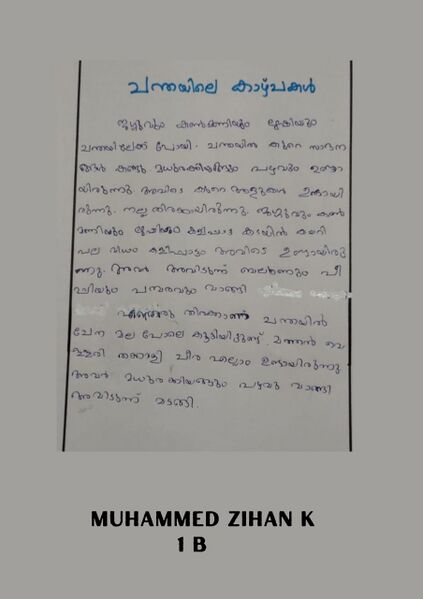 ചന്തയിലെ കാഴ്ചകൾ
ജഗ്ഗുവും കൺമണിയും
ചന്തയിലേക്ക് പോയി. ചന്തയിൽ കുറെ സാദന
ങ്ങൾ കണ്ടു. മധുരക്കിയങ്ങും പഴവും ഉണ്ടാ
യിരുന്നു. അവിടെ കുറെ ആളുകൾ ഉണ്ടായി
രുന്നു. നല്ല തിരക്കായിരുന്നു. ജഗ്ഗുവും കൺ
മണിയും കളിപ്പാട്ട കടയിൽ കയറി
പല വിധം കളിപ്പാട്ടം അവിടെ ഉണ്ടായിരു
ന്നു. അവർ അവിടുന്ന് ബലൂണും പീ
പ്പിയും പമ്പരവും വാങ്ങി
എന്തൊരു തിരക്കാണ് ചന്തയിൽ
ചേന മല പോലെ കൂട്ടിയിട്ടുണ്ട്. മത്തൻ വെ
ള്ളരി തക്കാളി ചീര എല്ലാം ഉണ്ടായിരുന്നു
അവർ മധുരക്കിയങ്ങും പഴവു വാങ്ങി
അവിടുന്ന് മടങ്ങി.
MUHAMMED ZIHAN K
1 B